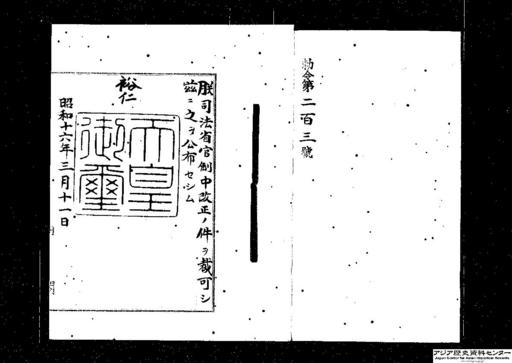 勅令第二百三號
朕司法省官制中改正ノ件ヲ裁可シ
茲ニ之ヲ公布セシム
裕仁
天皇
御璽
昭和十六年三月十一日
内閣
アジア歴史資料センター
Japan Center for Asian Historical Records